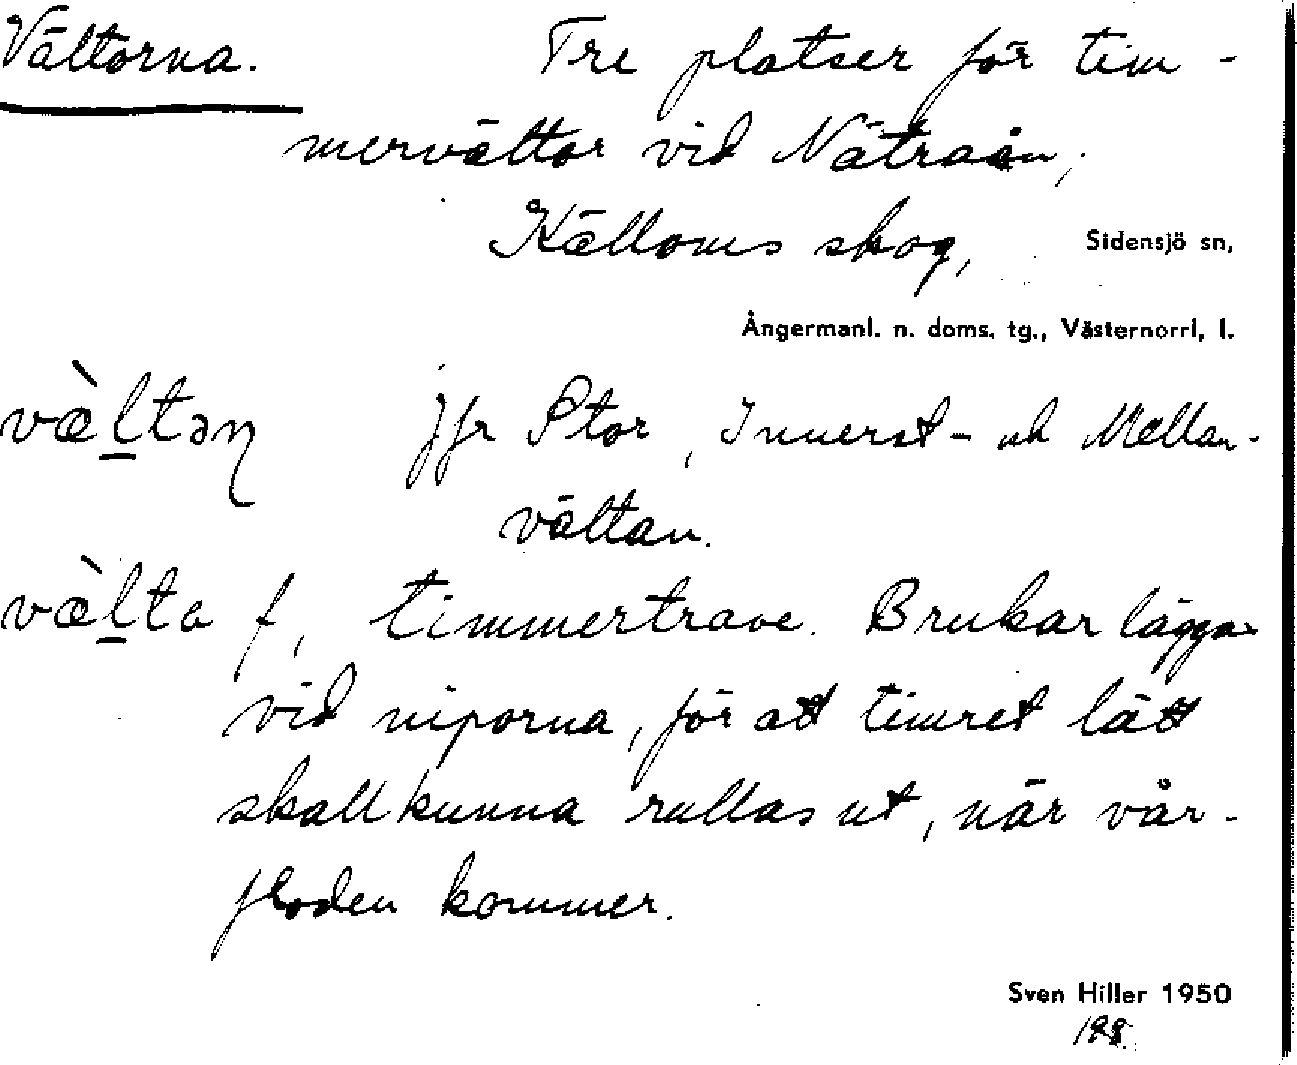 Vältorna. Tre platser för tim-
mervältor vid Nätraån,
Källoms skog, Sidensjö sn,
Ångermanl. n. doms. tg., Västernorrl. l.
væ̀l̲təɳ jfr Stor, Innerst- och Mellan-
vältan.
væ̀l̲ta f, timmertrave. Brukar läggas
vid niporna, för att timret lätt
skall kunna rullas ut, när vår-
floden kommer.
Sven Hiller 1950
198.